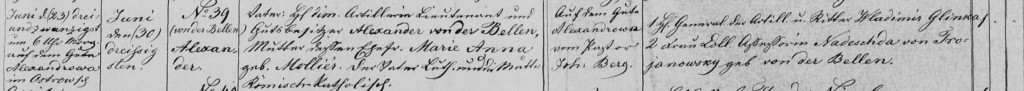 Juni d. (23) drei
und zwanzigst
um 6 Uhr Morg.
auf dem Gute
Alexandrowa
im Ostrowsch
Juni
den (30)
dreissig
sten.
No 39
(von der Bellen)
Alexan-
der.
Vater: Hr dim. Artillerie Lieutenant und
Gutsbesitzer Alexander von der Bellen,
Mutter dessen Ehefr. Marie Anna
geb. Mollier. Der Vater Luth. und die Mutter
Römisch-Katholisch.
Auf dem Gute
Alexandrowa
vom Pastor
Joh. Berg.
1 Hr General der Artill u. Ritter Wladimir Glinka,
2 Frau Coll. Assessorin Nadeschda von Tro-
janowsky geb von der Bellen.